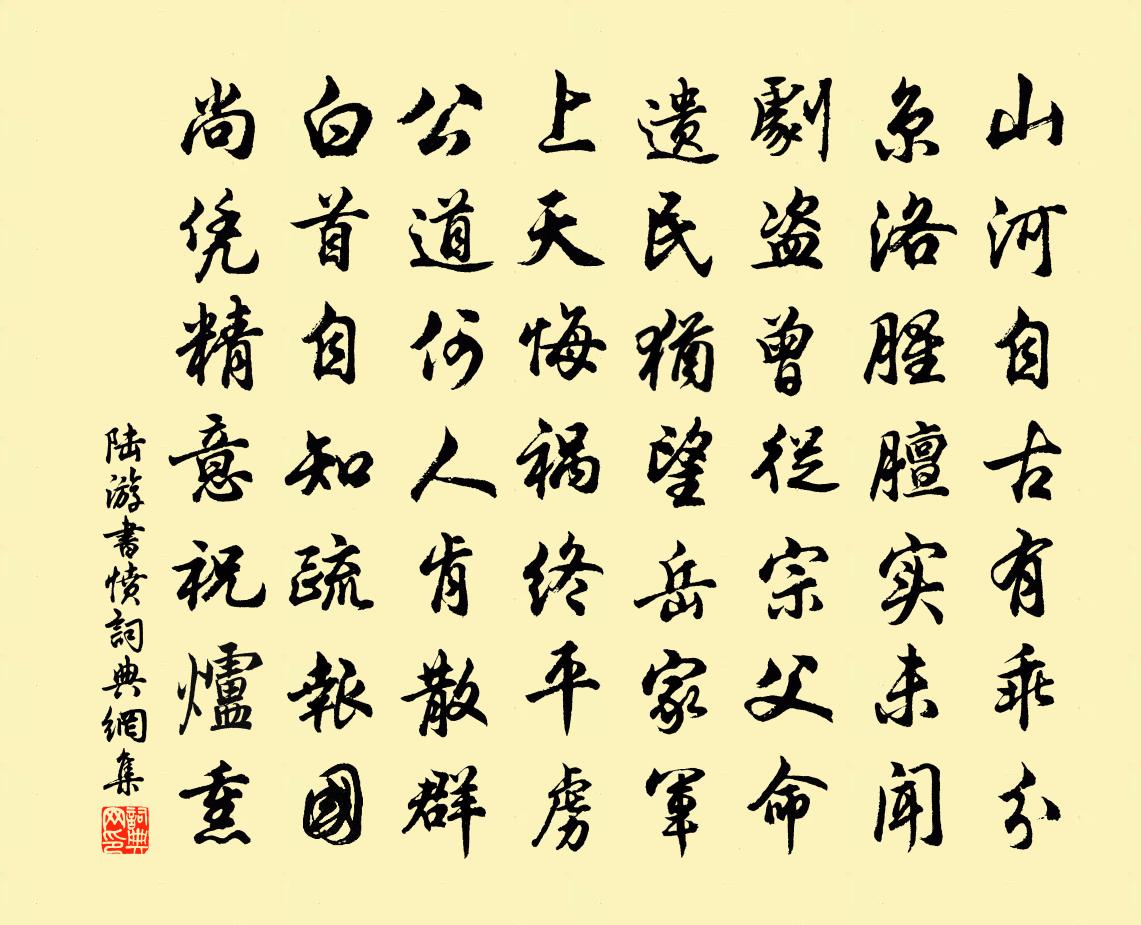 山河自古有乖分
京洛腥膻实未闻
劇盗曾從宗父命
遗民猶望岳家軍
上天悔祸终平虏
公道何人肯散群
白首自知疏報國
尚凭精意祝爐熏
陆游書愤詞典網集
詞典网印